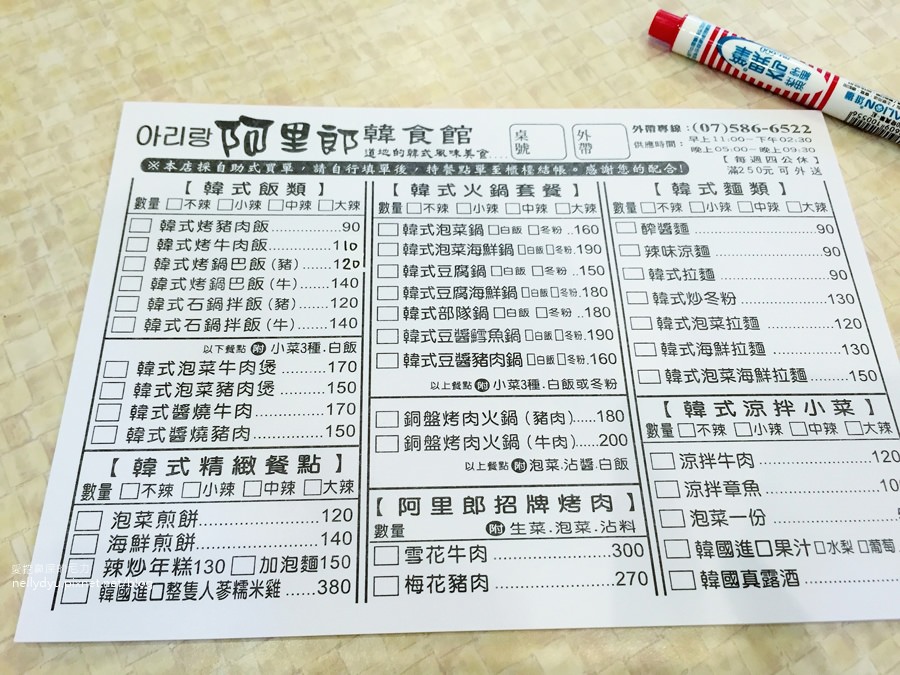 아리랑 阿里郎 韓食館
道地的韓式風味美食....
桌號
外帶
外帶專線：(07)586-6522
供應時間：早上11:00-下午02:30
晚上05:00-晚上09:30
【每週四公休】
滿250元可外送
※本店採自助式買單，請自行填單後，持餐點單至櫃檯結帳。感謝您的配合!
【韓式飯類】
數量 □不辣 □小辣 □中辣 □大辣
□ 韓式烤豬肉飯 90
□ 韓式烤牛肉飯 110
□ 韓式烤鍋巴飯(豬) 120
□ 韓式烤鍋巴飯(牛) 140
□ 韓式石鍋拌飯(豬) 120
□ 韓式石鍋拌飯(牛) 140
以下餐點 附 小菜3種.白飯
□ 韓式泡菜牛肉煲 170
□ 韓式泡菜豬肉煲 150
□ 韓式醬燒牛肉 170
□ 韓式醬燒豬肉 150
【韓式精緻餐點】
數量 □不辣 □小辣 □中辣 □大辣
□ 泡菜煎餅 120
□ 海鮮煎餅 140
辣炒年糕130 □加泡麵150
□ 韓國進口整隻人蔘糯米雞 380
【韓式火鍋套餐】
數量 □不辣 □小辣 □中辣 □大辣
□ 韓式泡菜鍋 □白飯 □冬粉 160
□ 韓式泡菜海鮮鍋 □白飯 □冬粉 190
□ 韓式豆腐鍋 □白飯 □冬粉 150
□ 韓式豆腐海鮮鍋 □白飯 □冬粉 180
□ 韓式部隊鍋 □白飯 □冬粉 180
□ 韓式豆醬鱈魚鍋 □白飯 □冬粉 190
□ 韓式豆醬豬肉鍋 □白飯 □冬粉 160
以上餐點 附 小菜3種.白飯或冬粉
□ 銅盤烤肉火鍋(豬肉) 180
□ 銅盤烤肉火鍋(牛肉) 200
以上餐點 附 泡菜.沾醬.白飯
【阿里郎招牌烤肉】
數量 附 生菜.泡菜.沾料
□ 雪花牛肉 300
□ 梅花豬肉 270
【韓式麵類】
數量 □不辣 □小辣 □中辣 □大辣
□ 酢醬麵 90
□ 辣味涼麵 90
□ 韓式拉麵 90
□ 韓式炒冬粉 130
□ 韓式泡菜拉麵 120
□ 韓式海鮮拉麵 130
□ 韓式泡菜海鮮拉麵 150
【韓式涼拌小菜】
數量 □不辣 □小辣 □中辣 □大辣
□ 涼拌牛肉 120
□ 涼拌章魚 10
□ 泡菜一份
□ 韓國進口果汁 □水梨 □葡萄
□ 韓國真露酒
油性
LION